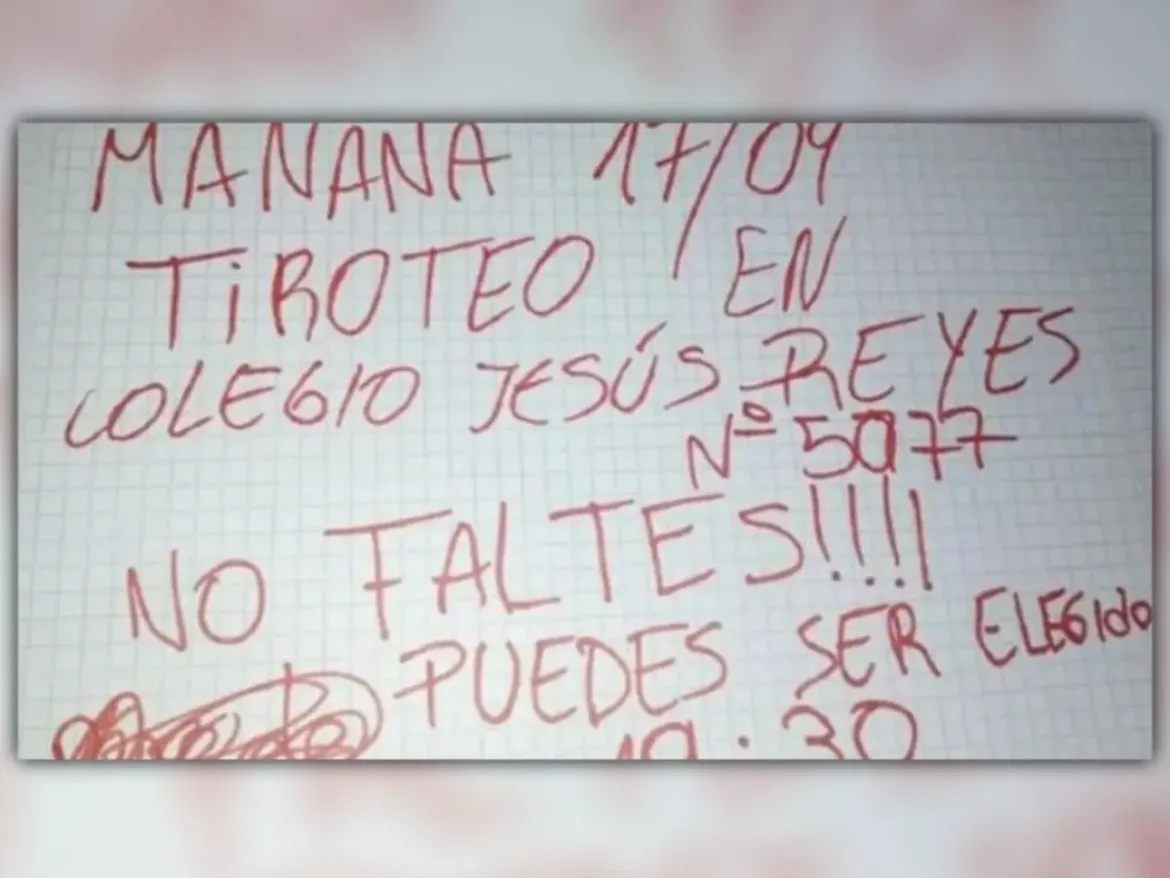 MAÑANA 17/04
TiROTEO EN
COLEGIO JESÚS REYES
Nº 5077
NO FALTES!!!!
PUEDES SER ELEGIdO